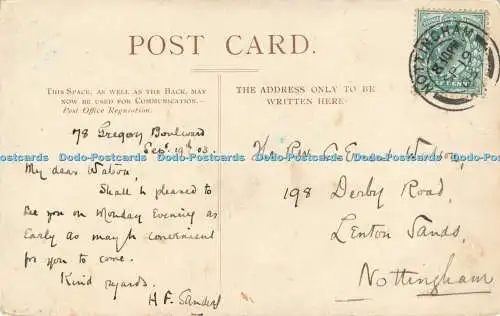 POST CARD.
THIS SPACE, AS WELL AS THE BACK, MAY
NOW BE USED FOR COMMUNICATION.—
Post Office Regulation.
78 Gregory Boulevard
Sept. 19th 03.
My dear Watson,
Shall b pleased to
see you on Monday Evening as
Early as may b convenient
for you to come.
Kind regards.
H F. Sanders
THE ADDRESS ONLY TO BE
WRITTEN HERE.
The Rev Watson,
198 Derby Road,
Lenton Sands,
Nottingham
NOTTINGHAM
Dodo-Postcards Dodo-Postcards Dodo-Postcards Dodo-Postcards Dodo-Postcards